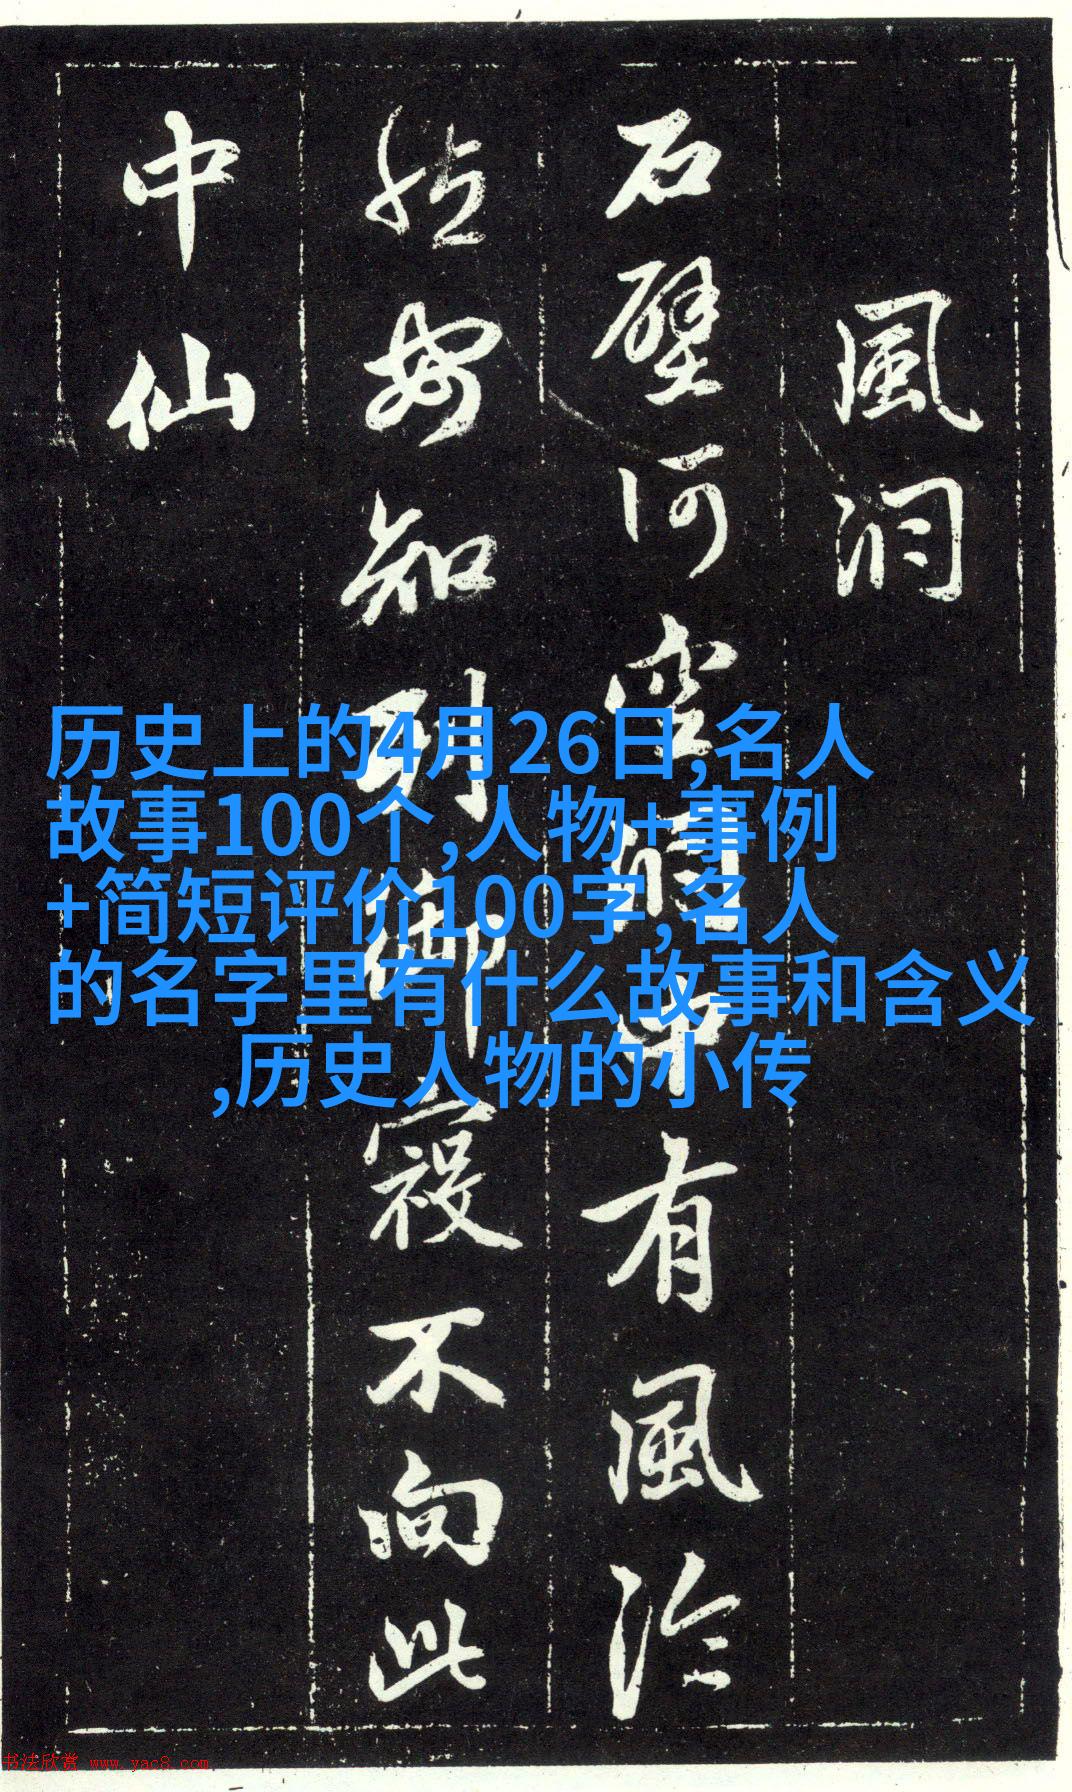 風洞
石壁何空洞中有風泠
然安知列御寇不向此
中仙
历史上的4月26日,名人
故事100个,人物+事例
+简短评价100字,名人
的名字里有什么故事和含义
,历史人物的小传
书法欣赏 www.yac8.com